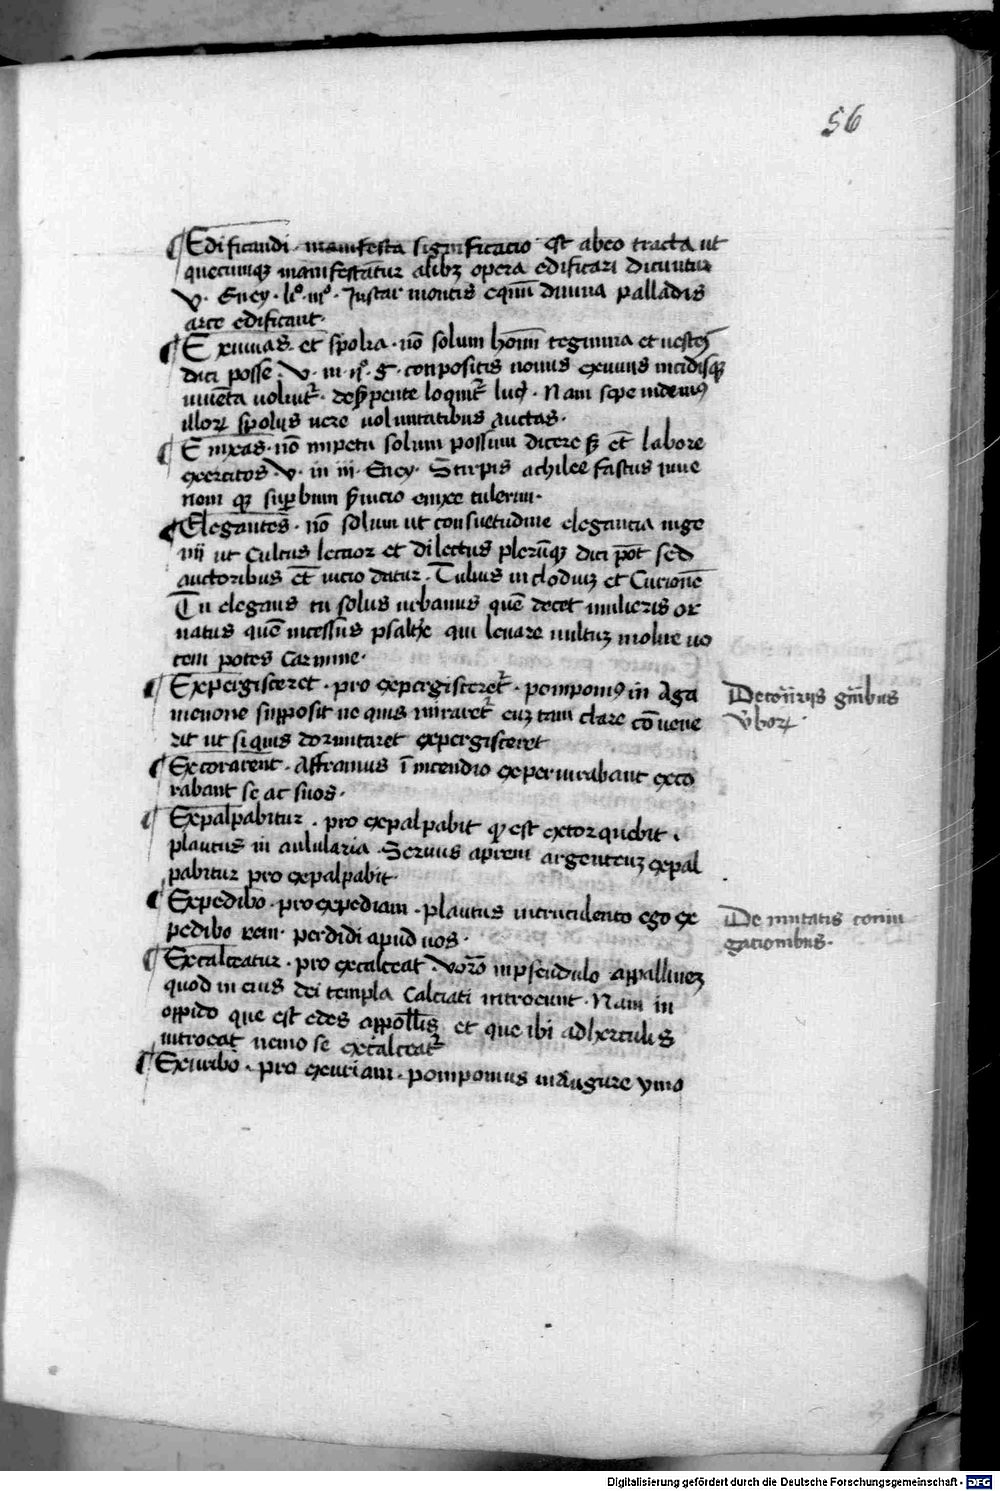 56
¶ Edificandi · manifesta significacio est abeo tracta ut
quecumqꝫ manifestantur alibꝫ opera edificari dicuntur
v. Eney · liº · iijº · Instar montis equū diuina palladis
arte edificant ·
¶ Exuuias · et spolia · nō solum homī tegmina et uestes
dici posse · v. in · G · conpositis nouus exuuiis incidisqꝫ
loquit᷑ · Nam sepe uidemꝰ
illoꝝ spoliis uere uoluntatibus auctas ·
¶ Enixas · nō inpetu solum possum dicere et labore
exercitos · v. in iij · Eney · Stirpis achilee fastus iuue
nem qꝫ supbum enixe tulerim ·
¶ Elegantes · nō solum ut consuetudine elegancia inge
nij ut Cultus lectior et dilectus plerūqꝫ dici pōt sed
auctoribus et uicio datur · Tulius in clodiuꝫ et Curionē
Tu elegans tu solus urbanus quē decet mulieris or
natus quē incessus psaltrie qui leuare uultuꝫ molire uo
cem potes Carmine ·
¶ Expergisceret · pro expergisceret᷑ · pomponiꝰ in Aga
menone supposit ne quis miraret᷑ cuꝫ tam clare cōuene
rit ut si quis dormitaret expergisceret
Decōtrarijs gn̄ibus
v̄boꝝ ·
¶ Excorarent · Affranius ī incendio experiurabant exco
rabant se ac suos ·
¶ Expalpabitur · pro expalpabit qd̛ est extorquebit ·
plautus in aulularia · Seruus apreni argenteuꝫ expal
pabitur pro expalpabit ·
¶ Expedibo · pro expediam · plautus intruculento ego ex
pedibo rem · perdidi apud uos ·
De mutatis coniu
gationibus ·
¶ Excalceatur · pro excalceat · Vōro inpseudulo appallineꝫ
quod in eius dei templa Calciati introeunt · Nam in
oppido que est edes appollis et que ibi adherculis
introeat nemo se excalceat᷑
¶ Exuribo · pro exuriam · pomponius inaugure ymo
Digitalisierung gefördert durch die Deutsche Forschungsgemeinschaft - DFG